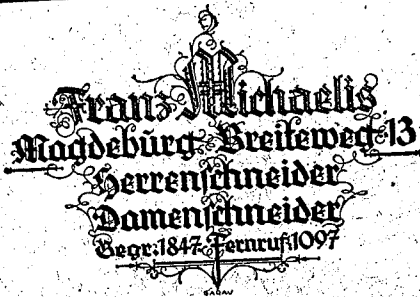 Franz Michaelis
Magdeburg Breiteweg 13
Herrenschneider
Damenschneider
Gegr: 1847 Fernruf: 1097